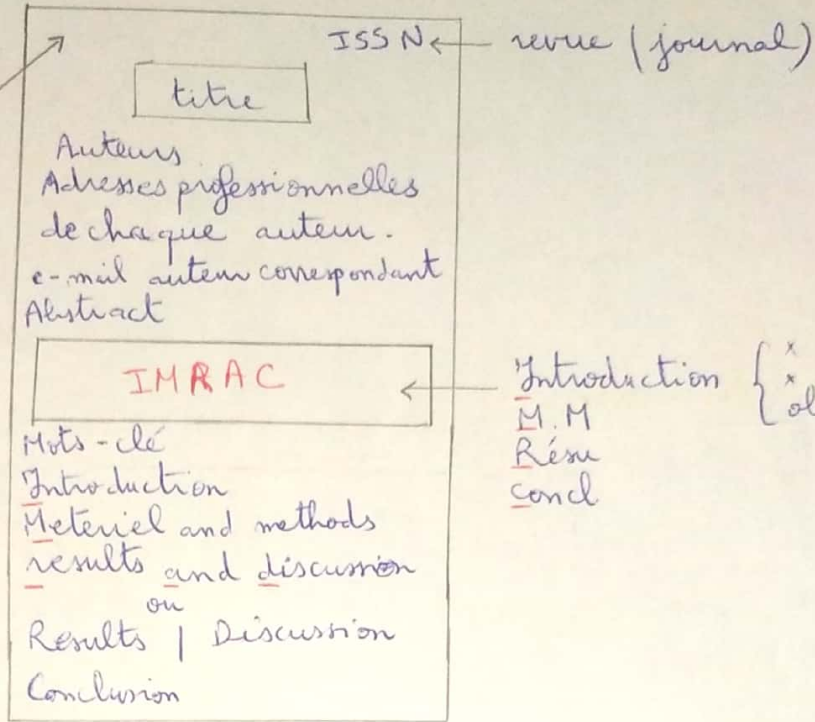 ISSN ← revue (journal)
titre
Auteurs
Adresses professionnelles
de chaque auteur.
e-mail auteur correspondant
Abstract
IMRAC
Introduction { x
x
M.M
Résu
Concl
Mots-clé
Introduction
Meteriel and methods
results and discussion
ou
Results | Discussion
Conclusion